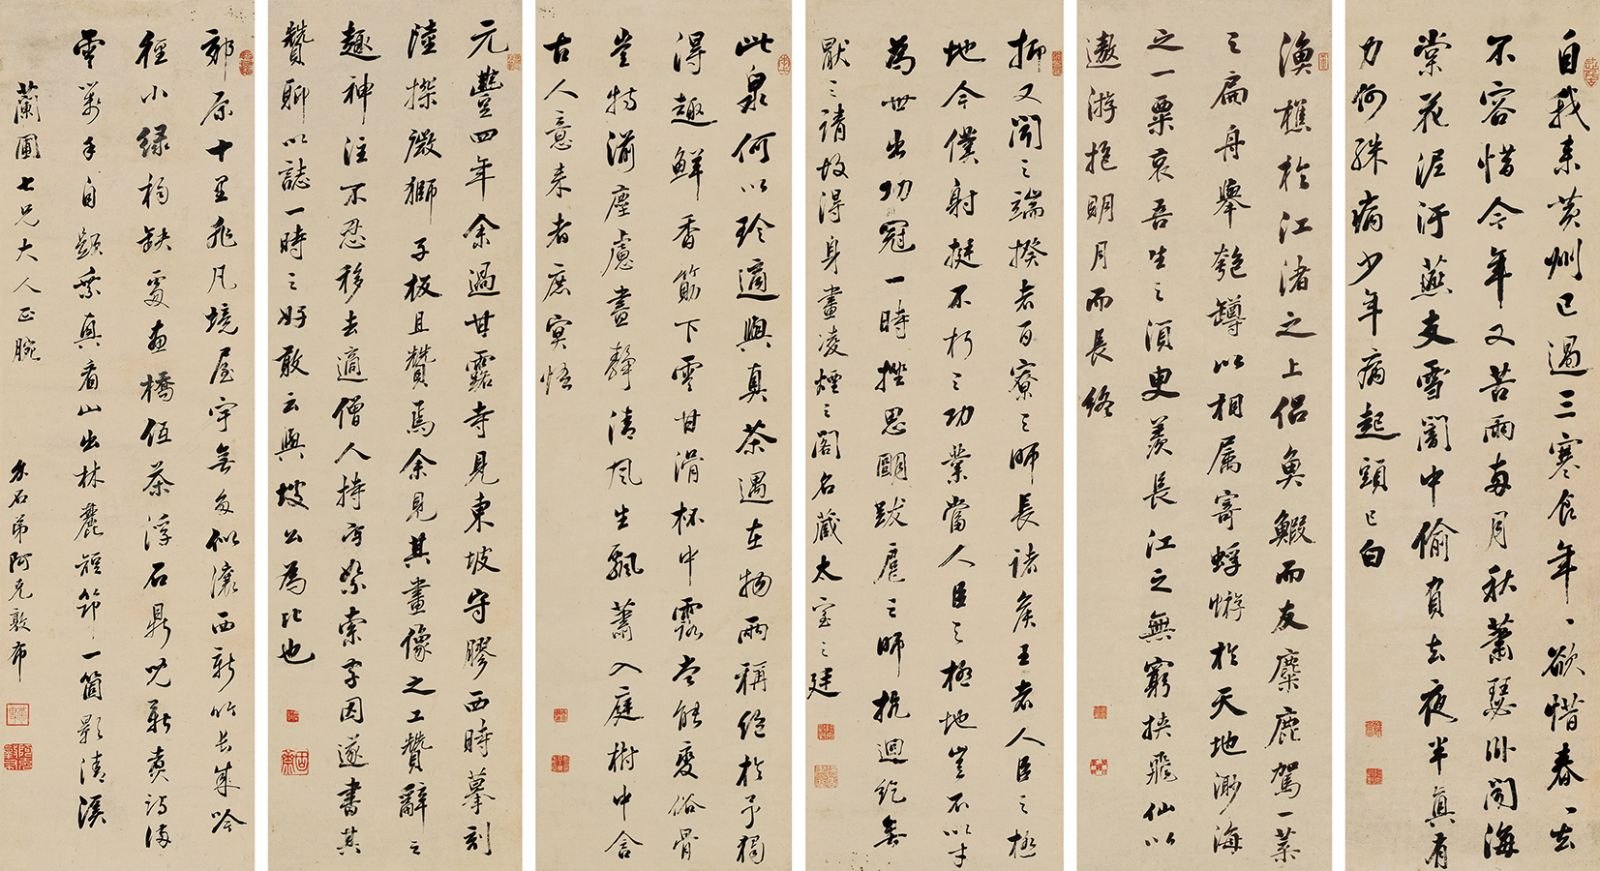 自我來黃州已過三寒食年〻欲惜春〻去
不容惜今年又苦雨兩月秋蕭瑟卧聞海
棠花泥汙燕支雪闇中偷負去夜半真有
力何殊病少年病起頭已白
漁樵於江渚之上侶魚鰕而友麋鹿駕一葉
之扁舟舉匏罇以相属寄蜉蝣於天地渺海
之一粟哀吾生之須臾羨長江之無窮挾飛仙以
遨游抱明月而長終
抑又聞之端揆者百寮之師長諸矦王者人臣之極
地今僕射挺不朽之功業當人臣之極地豈不以才
為世出功冠一時挫思明跋扈之師抗迴紇無
厭之請故得身畫凌煙之閣名藏太室之廷
此泉何以珍適與真茶遇在物兩稱絕於予獨
得趣鮮香筯下雲甘滑杯中露當能變俗骨
豈特湔塵慮晝靜清風生飄蕭入庭樹中含
古人意來者庶冥悟
元豐四年余過甘露寺見東坡守膠西時摹刻
陸探微獅子板且贊焉余見其畫像之工贊辭之
趣神注不忍移去適僧人持索字因遂書其
贊聊以誌一時之好敢云與坡公為比也
郊原十里飛凡境屋宇無多似瀼西新竹長成吟
徑小緑楊缺處畫橋低茶浮石鼎新煮詩滿
雲箋手自題真看山出林麓短筇一箇影清溪
蘭圃七兄大人正腕
朵石弟阿克敦布